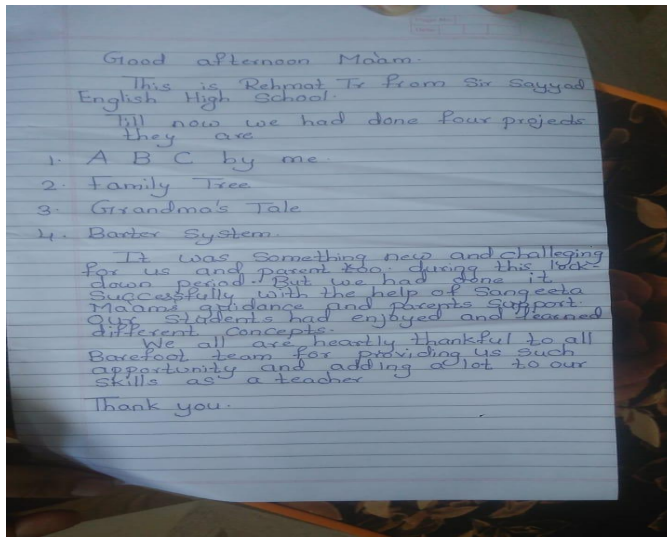 Good afternoon Ma'am.
This is Rehmat Tr from Sir Sayyad
English High School.
Till now we had done four projects
they are
1. A B C by me
2. Family Tree
3. Grandma's Tale
4. Barter System.
It was something new and challeging
for us and parent too. during this lock-
down period. But we had done it
Successfully with the help of Sangeeta
Maams guidance and parents support.
Our Students had enjoyed and learned
different concepts.
We all are heartly thankful to all
Barefoot team for providing us such
opportunity and adding a lot to our
skills as a teacher
Thank you.